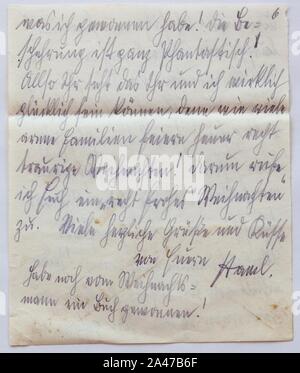 6
was ich gewonnen habe! Die Be=
scherung ist ganz Phantastisch!
Allso Ihr seht das Ihr und ich wirklich
glücklich sein können, denn wie viele
arme Familien feiern heuer recht
traurige Weihnachten! darum rufe
ich Euch ein recht frohes "Weihnachten"
zu. Viele herzliche Grüße und Küsse
von Euern
Habe noch vom Weihnachts=
mann ein Buch gewonnen!
alamy
Image ID: 2A47B6F
www.alamy.com